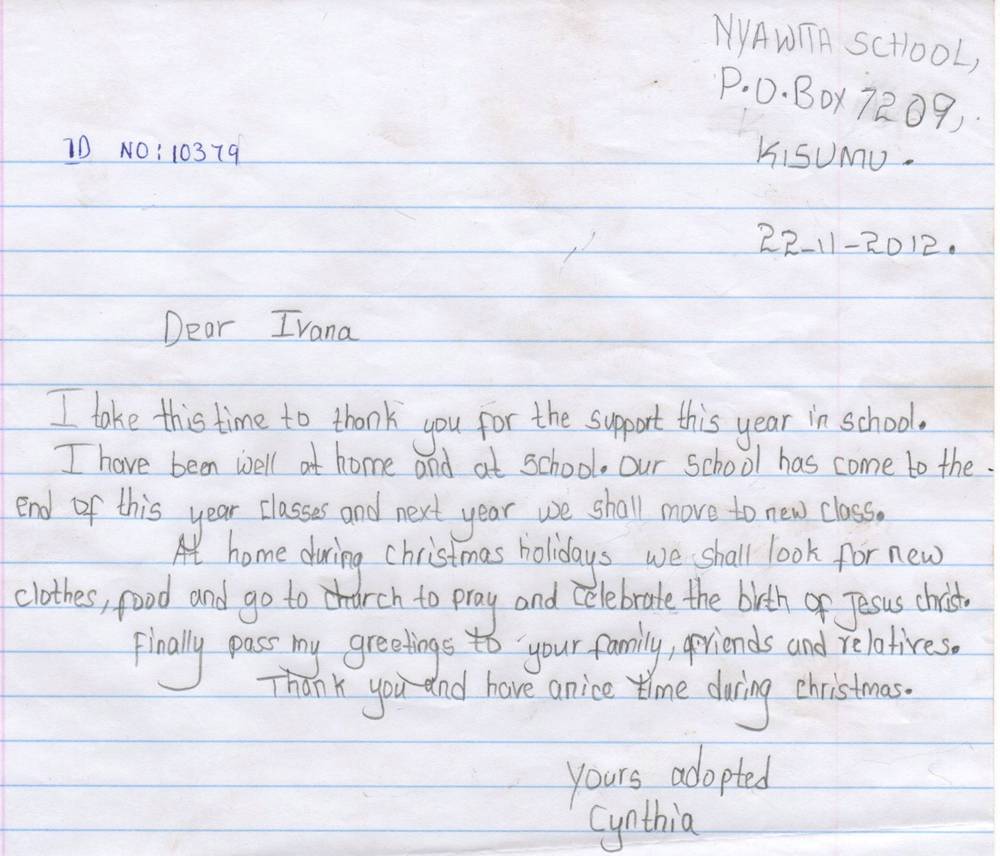 NYAWITA SCHOOL,
P.O.BOX 7209,
ID NO: 10379
KISUMU.
22-11-2012.
Dear Ivana
I take this time to thank you for the support this year in school.
I have been well at home and at school. Our school has come to the
End of this year classes and next year we shall move to new class.
At home during christmas holidays we shall look for new
clothes, food and go to church to pray and celebrate the birth of Jesus christ.
Finally pass my greetings to your family, friends and relatives.
Thank you and have a nice time during christmas.
Yours adopted
Cynthia